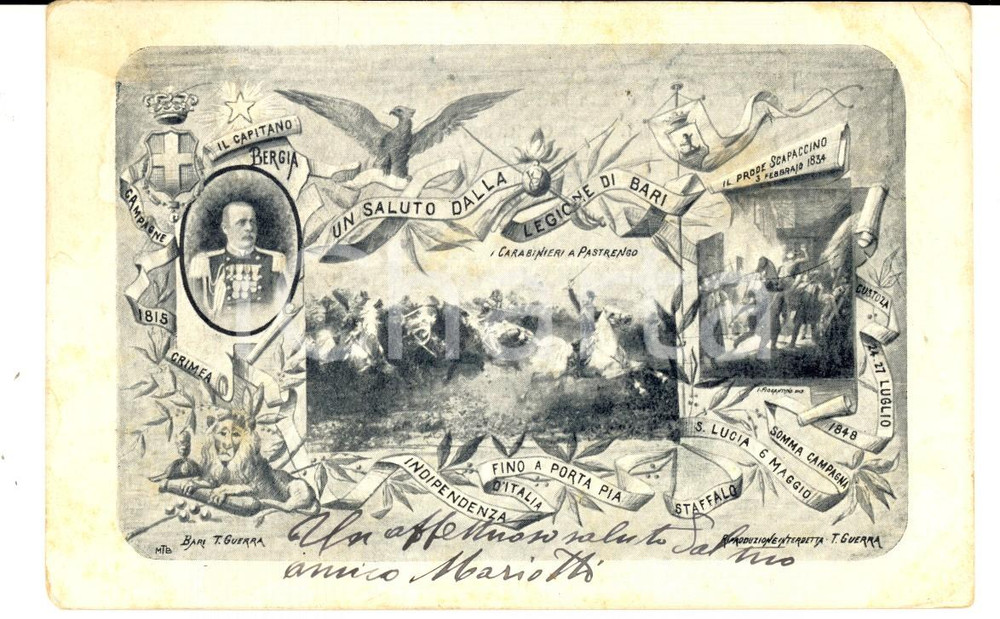 IL CAPITANO
BERGIA
UN SALUTO DALLA
LEGIONE DI BARI
IL PRODE SCAPACCINO
3 FEBBRAJO 1834
I CARABINIERI A PASTRENGO
CAMPAGNE
1815
CRIMEA
CUSTOZA
24.27 LUGLIO
1848
SOMMA CAMPAGNA
S. LUCIA 6 MAGGIO
STAFFALO
FINO A PORTA PIA
D'ITALIA
INDIPENDENZA
Charta
MTB
BARI T. GUERRA
RIPRODUZIONE INTERDETTA - T. GUERRA
Un affettuoso saluto dal tuo
amico Mariotti